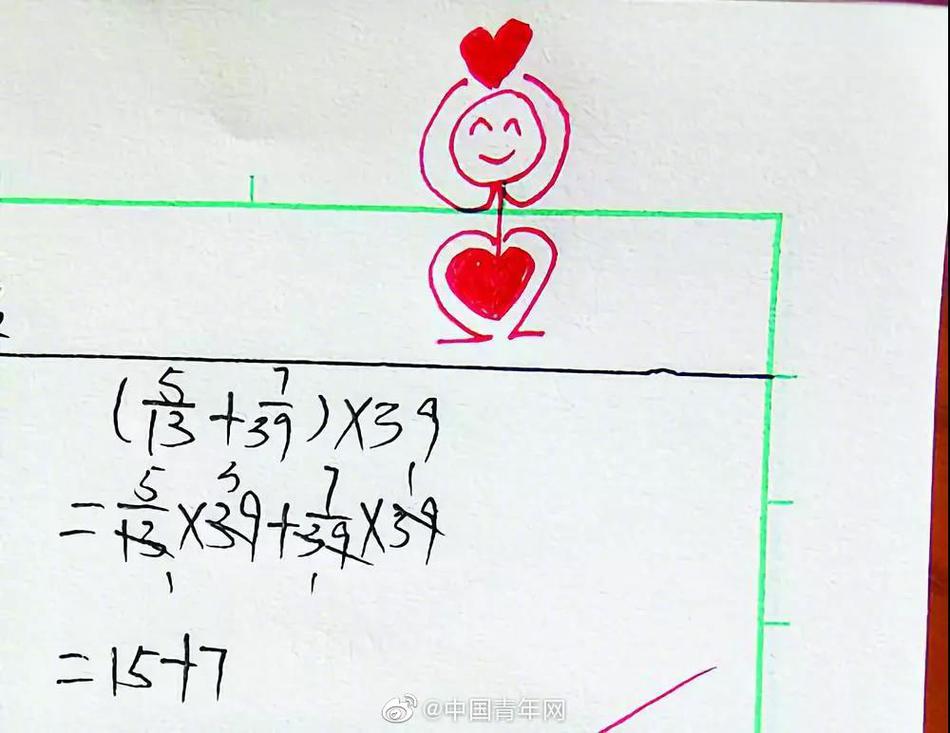 (5/13+7/39)×39
=5/13×39+7/39×39
3 1
1 1
=15+7
@中国青年网